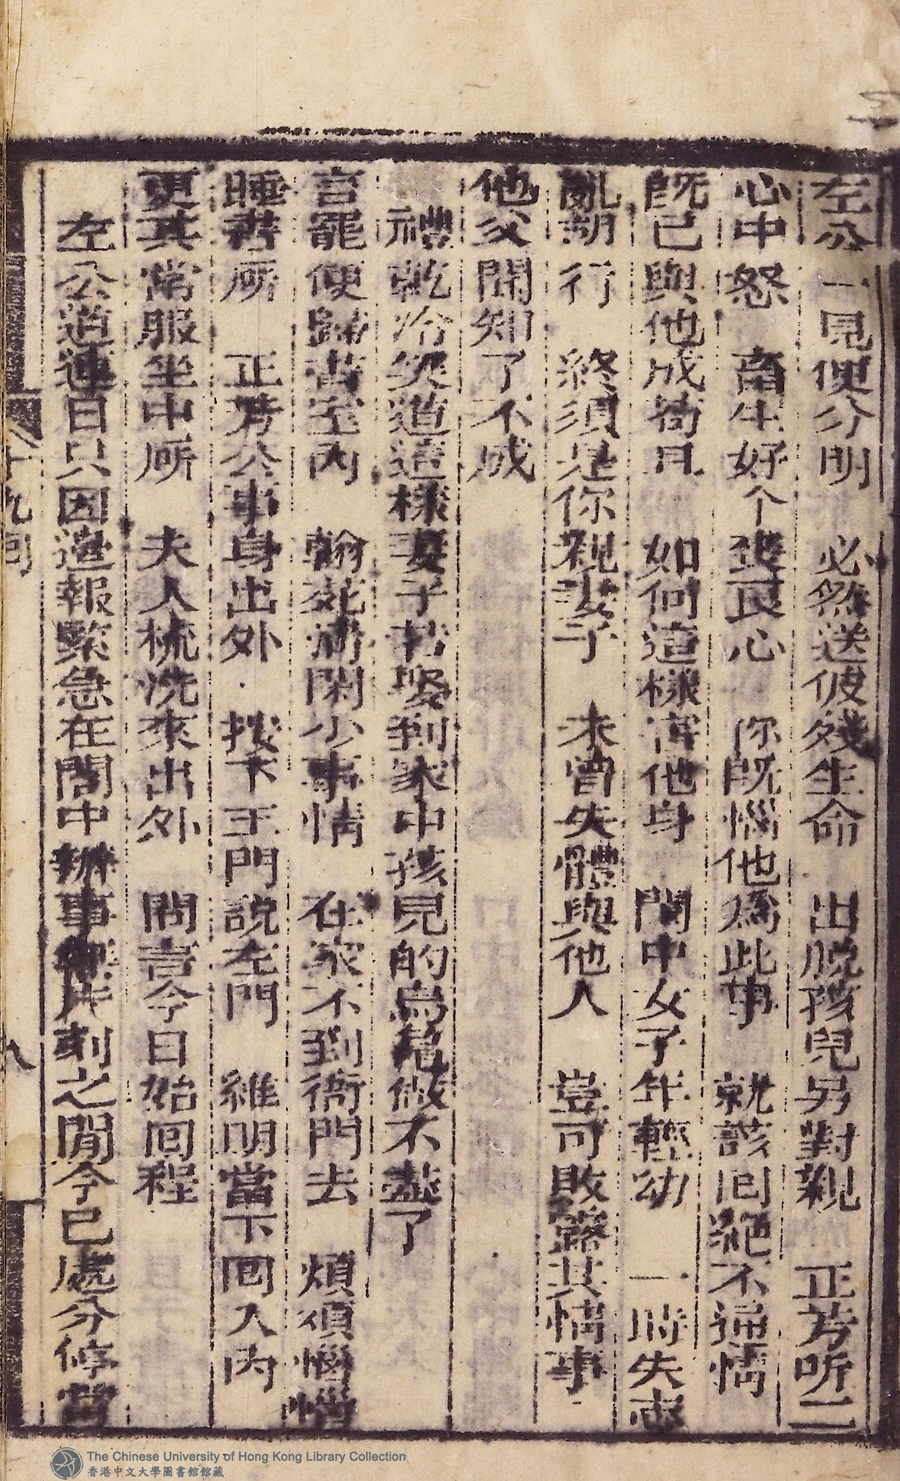 左公一見便分明　必然送彼殘生命　出脫孩兒另對親　正芳听二
心中怒　畜生好个喪良心　你既惱他為此事　就該囘絕不通情
既已與他成茍且　如何這樣害他身　閨中女子年輕幼　一時失志
亂胡行　終須是你親妻子　未曾失體與他人　豈可敗露其情事
他父聞知了不成
禮乾冷笑道這樣妻子若娶到家中孩兒的烏龜做不盡了
言罷便歸書室內　翰苑清閑少事情　在家不到衙門去　煩煩惱惱
睡書所　正芳公事身出外　按下王門說左門　維明當下囘入內
更其常服坐中所　夫人梳洗來出外　問言今日始囘程
左公道連日只因邊報緊急在閣中辦事無片刻之閒今已處分停當
十九囘
八
The Chinese University of Hong Kong Library Collection
香港中文大學圖書館館藏